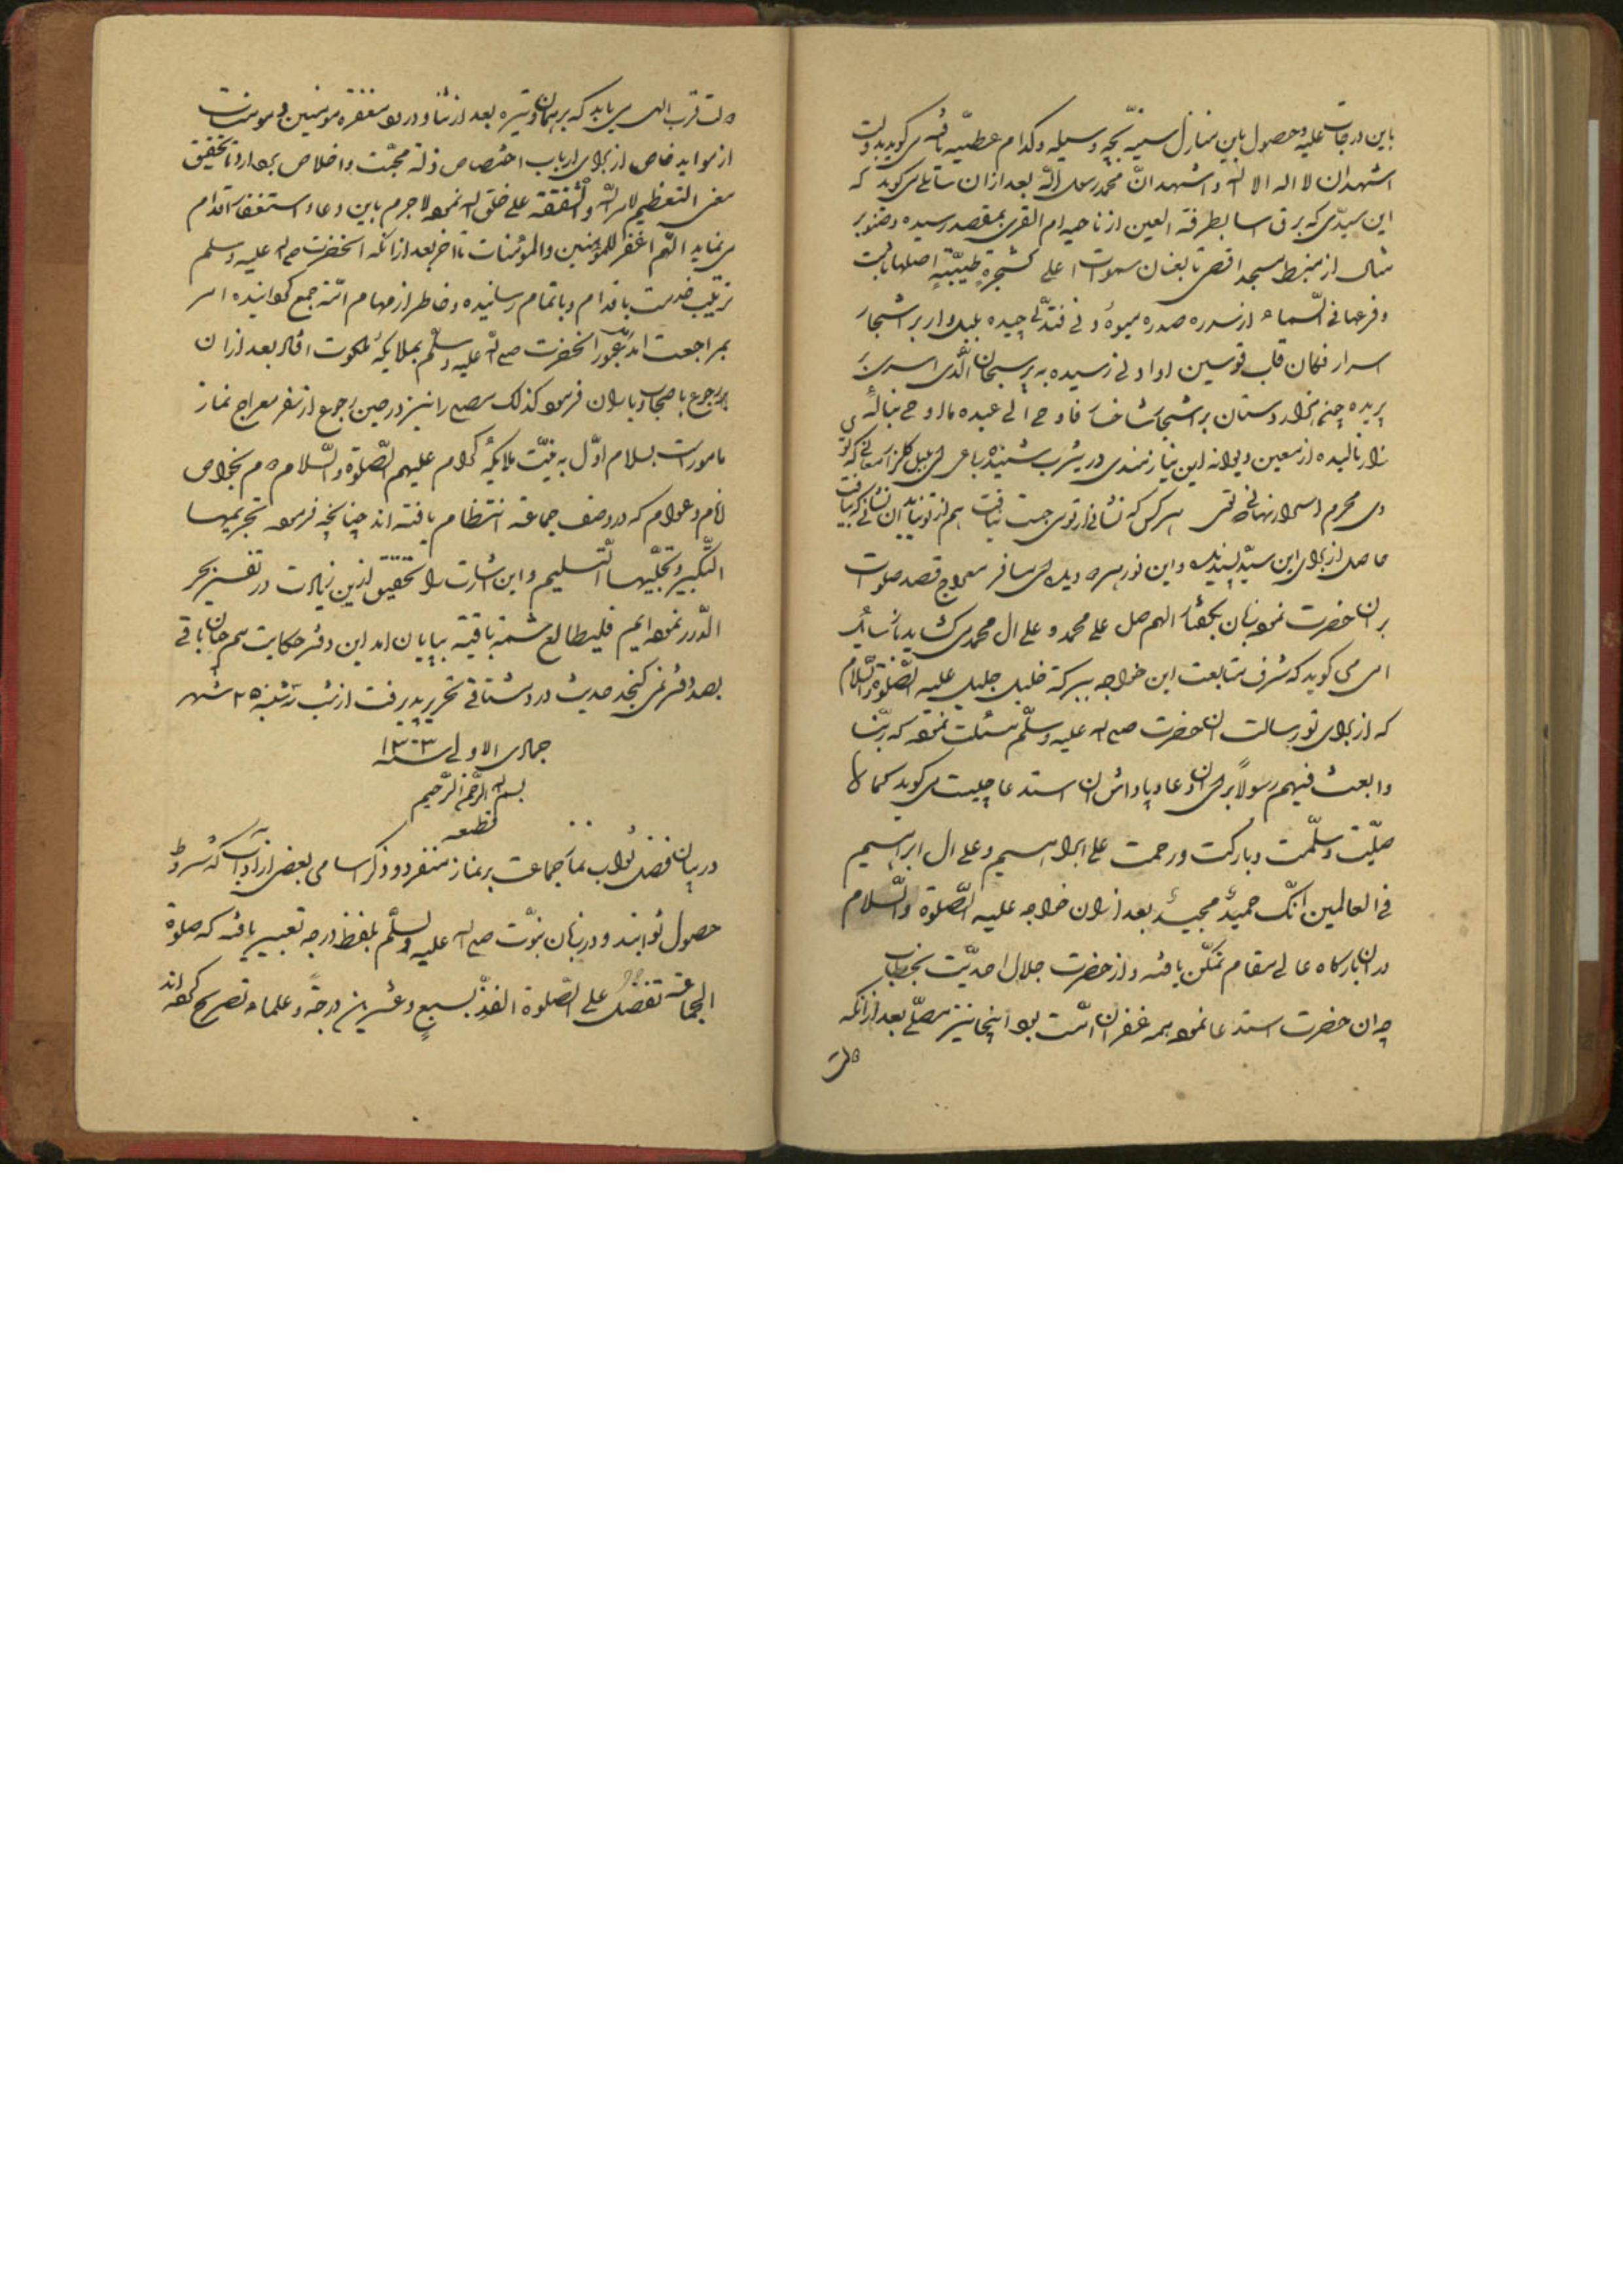 باین درجات علیه و حصول باین منازل سمیه بچه وسیله و کدام عطیّه یافته میکوید بدولت
اشهد ان لا اله الا الله و اشهد انّ محمد رسول الله بعد ازان سائلی میکوید که
این سیدی که برق اسا بطرفة العین از ناحیه ام القری بمقصد رسیده و صنوبر
مثال از مهبط مسجد اقصی تا بعنان سموات اعلی کشجرة طیبّة اصلها ثابت
و فرعها فی السّماء از سدره صدره میوهٔ دنی فتدلّی چیده بلبل وار بر اشجار
اسرار فکان قاب قوسین او ادنی رسیده به پر سبحان الّذی اسری
پریده چنم هزار دستان بر اشجار شاخسار فاوحی الی عبده ما اوحی بناله
زار نالیده از معین دیوانه این نیازمندی در یثرب شنیده رباعی ای بلبل کلزار معانی که تو
ی محرم اسرار نهانی که تویی هر کس که نشانی از توی جست نیافت هم از تو بیابد ان نشانی که نیافت
حاصل از برای این سیّد پسندیده و این نور هر دو دیده ای مسافر معراج قصد صلوات
بران حضرت نموده زبان بگفتار اللهم صل علی محمد و علی ال محمد می کشاید باز سائلی
امی می کوید که شرف متابعت این خواجه ببرکة خلیل جلیل علیه الصّلوة والسّلام
که از برای تو رسالت ان حضرت صلی الله علیه وسلّم مسئلت نموده که ربّنا
وابعث فیهم رسولاً برای ان دعا و پاداش ان استدعا چیست می کوید کما
صلّیت وسلّمت وبارکت ورحمت علی ابراهیم وعلی ال ابراهیم
فی العالمین انّک حمیدٌ مجیدٌ بعد ازان خواجه علیه الصّلوة والسّلام
دران بارکاه عالی مقام تمکّن یافته و از حضرت جلال احدیّت بخطاب
چه ان حضرت استدعا نموده همه غفران امّت بود اینجا نیز مصلّی بعد ازانکه
دولت قرب الهی می یابد که بر همان وتیره بعد از ثنا و درود مغفرة مومنین و مومنات
از مواید خاص از برای ارباب اختصاص ذلة محبّت و اخلاص بردارد تا تحقیق
معنی التعظیم لامر الله والشّفقة علی خلق الله نموده لاجرم باین دعا و استغفار اقدام
می نماید اللّهم اغفر للمؤمنین والمؤمنات تا اخر بعد ازانکه انحضرت صلی الله علیه وسلم
ترتیب خدمت باقدام و باتمام رسانیده و خاطر از مهام امّة جمع کردانیده امر
بمراجعت امد عبور انحضرت صلی الله علیه وسلّم بملایکهٔ ملکوت افتاد بعد ازان
رجوع باصحاب و یاران فرموده کذلک مصلی را نیز در حین رجوع از سفر معراج نماز
مامورست بسلام اوّل به نیّت ملایکه کرام علیهم الصّلوة والسّلام دوم بخواص
انام و عوام که در صف جماعة انتظام یافته اند چنانچه فرموده تحریمها
التّکبیر وتحلّیلها التّسلیم و این اشارت را تحقیق ازین زیادت در تفسیر بحر
الدّرر نموده ایم فلیطالع ثمة باقیه بپایان امد این دفتر حکایت همچنان باقی
بصد دفتر نمی کنجد حدیث درد مشتاقی تحریر پدیرفت از شب سه شنبه ۲۵ شهر
جمادی الاولی سنه ۱۳۰۳
بسم الله الرّحمن الرّحیم
قطعه
در بیان فضل ثواب نماز جماعت بر نماز منفرد و ذکر اسامی بعضی از آداب که شروط
حصول ثوابند و در زبان نبوّت صلی الله علیه وسلّم بلفظ درجه تعبیر یافته که صلوة
الجماعة تفضل علی الصّلوة الفذّ بسبعٍ وعشرین درجةً و علماء تصریح کرده اند